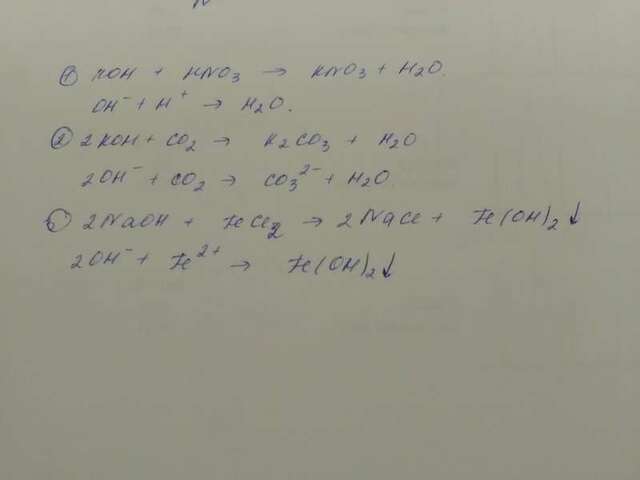 ① KOH + HNO₃ → KNO₃ + H₂O.
OH⁻ + H⁺ → H₂O.
② 2KOH + CO₂ → K₂CO₃ + H₂O
2OH⁻ + CO₂ → CO₃²⁻ + H₂O.
2NaOH + FeCl₂ → 2NaCl + Fe(OH)₂↓
2OH⁻ + Fe²⁺ → Fe(OH)₂↓